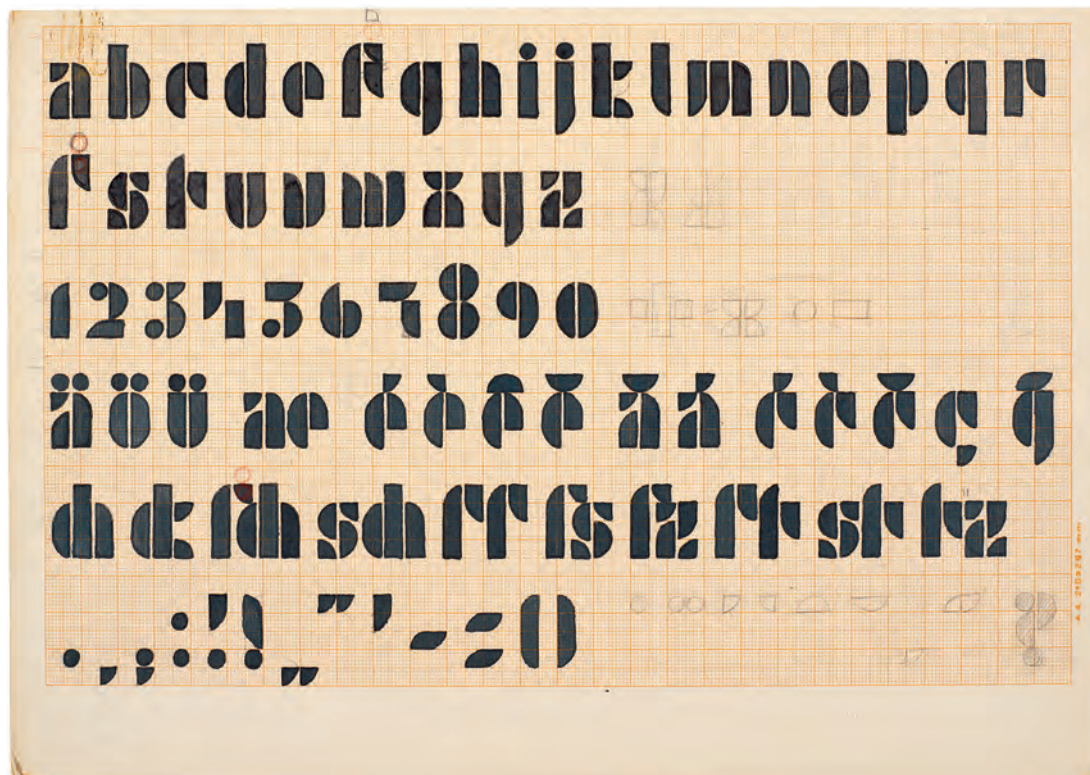 abcdefghijklmnopqr
ſstuvwxyz
1234567890
äöü æ éèê á ç
ch ck ſch sch ſſ ſs ſz ſt st tz
. , ; : ? ! „ ” ’ - = ()
A 4 210 x 297 mm